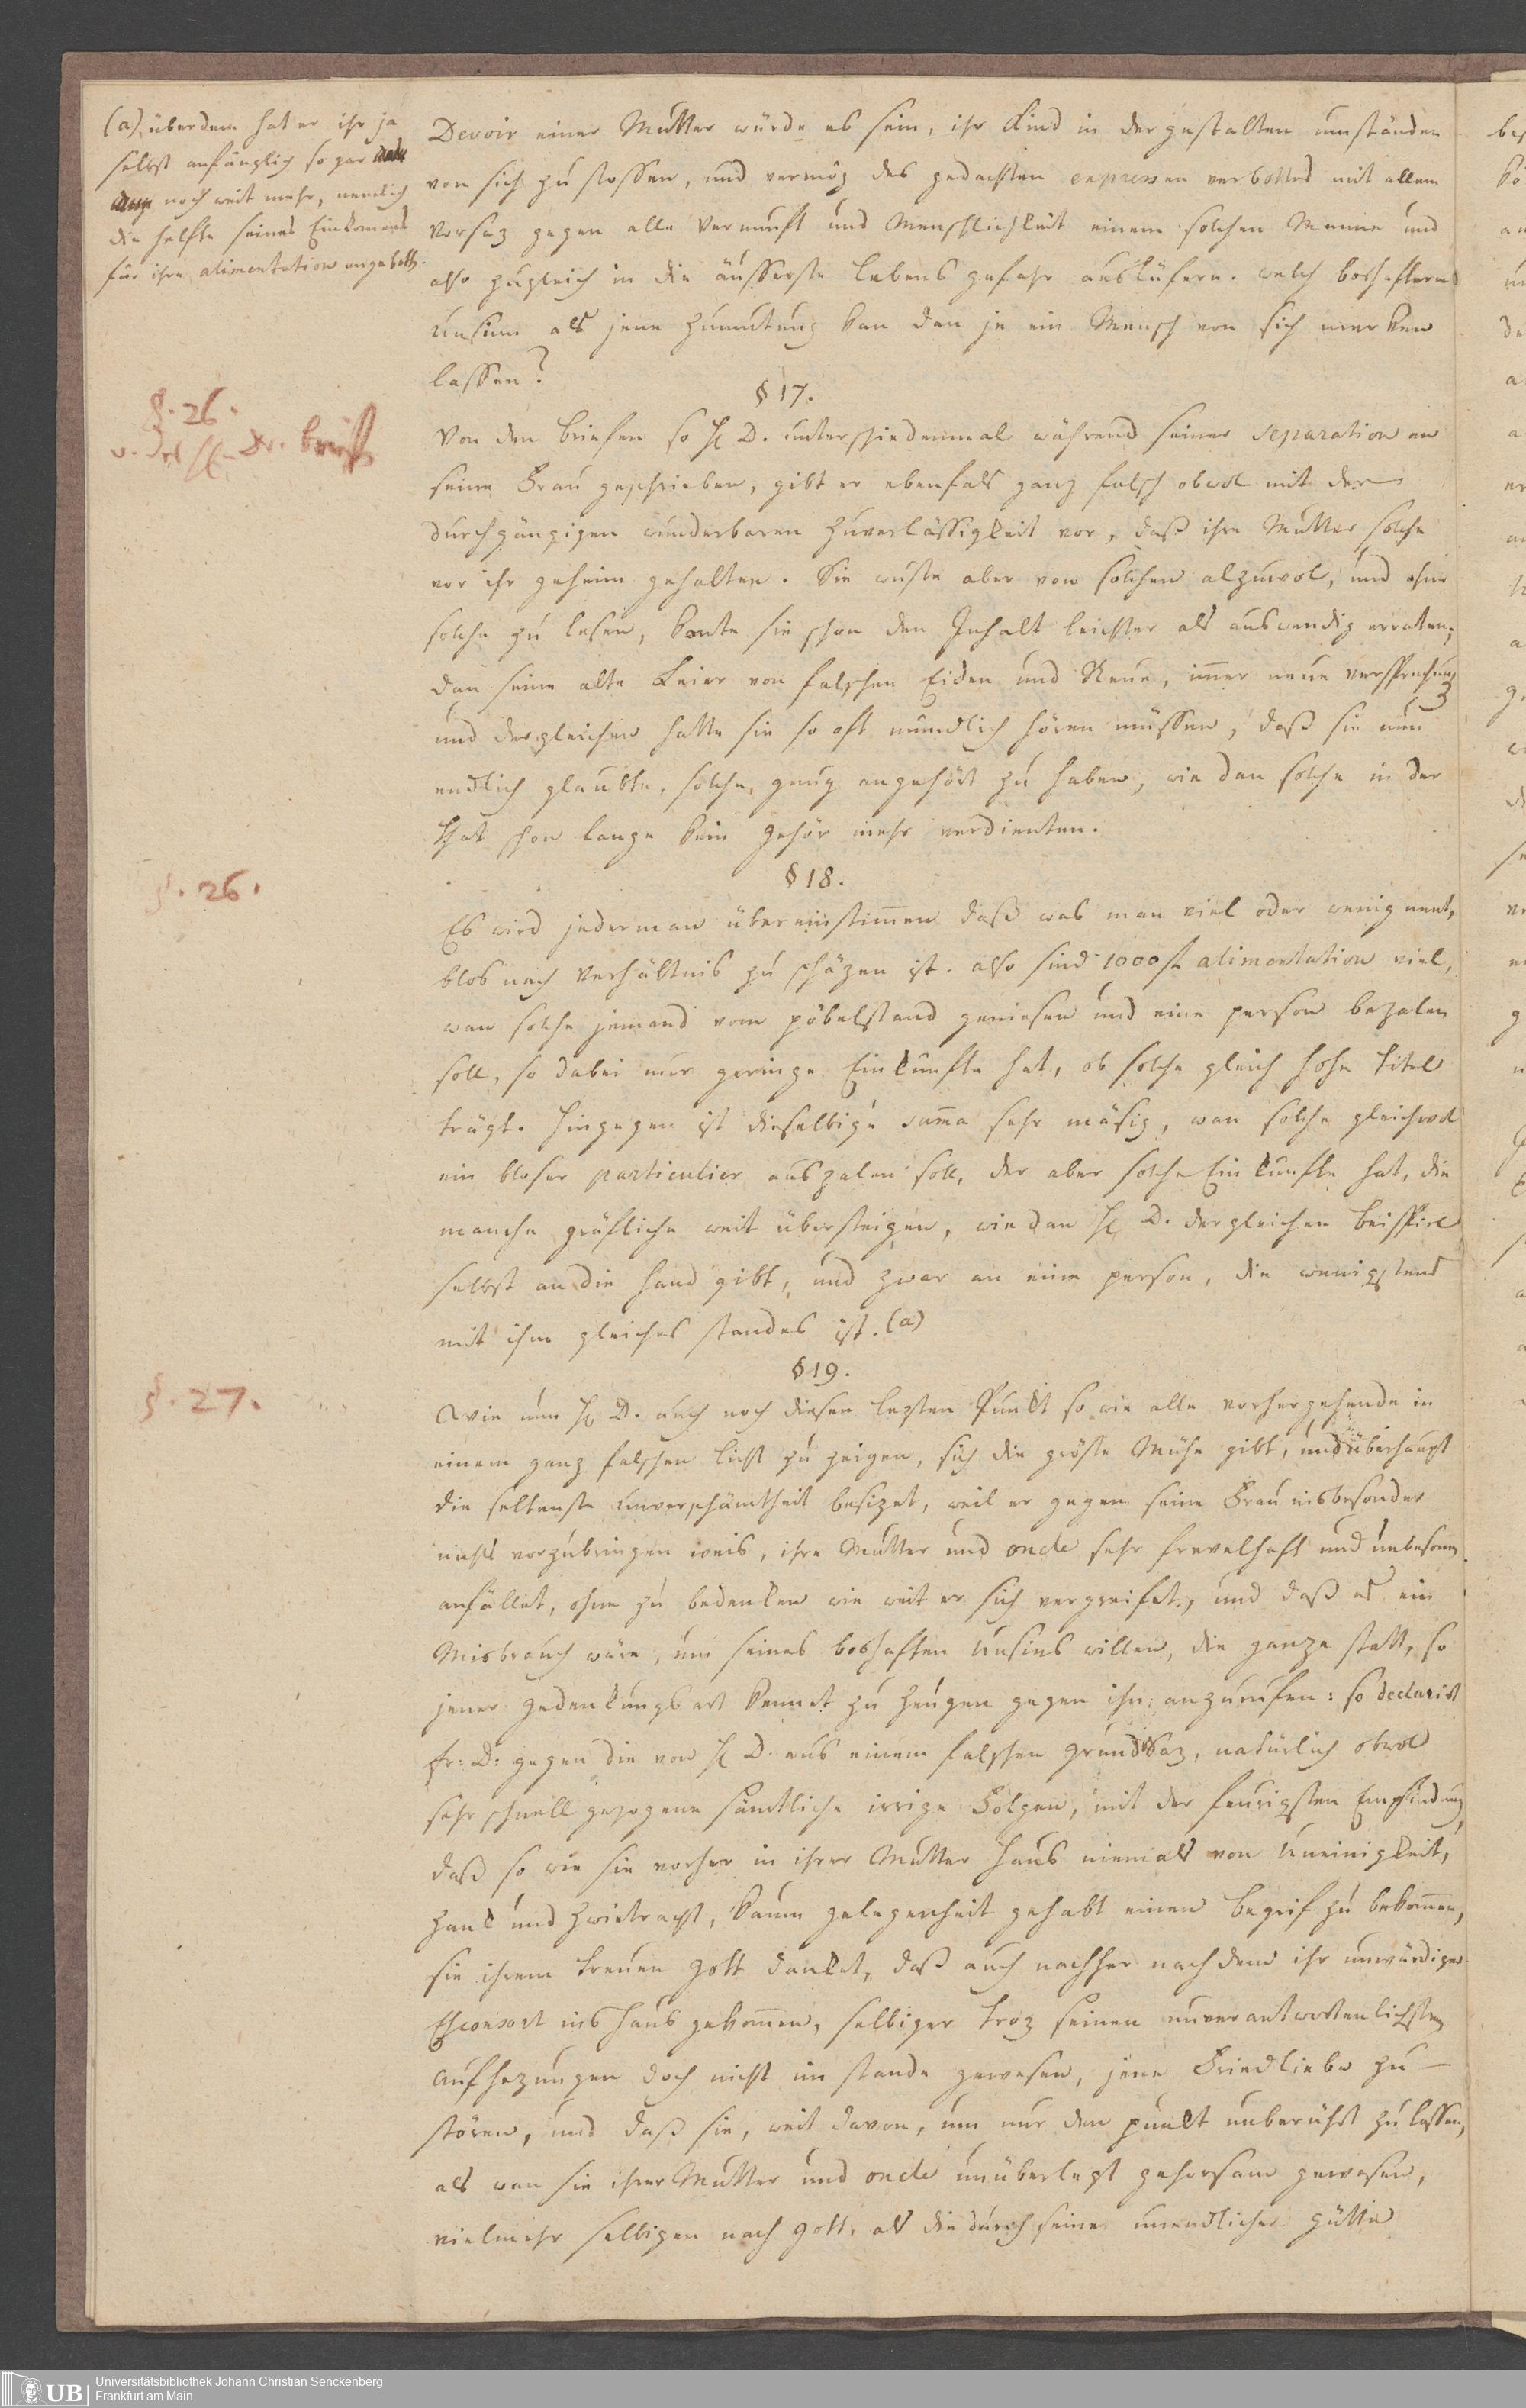 (a) überdem hat er ihr ja
selbst anfänglich so gar
noch weit mehr, nemlich
die helfte seines Einkomens
für ihre alimentation angebotten.
Devoir einer Mutter würde es sein, ihr Kind in dergestalten umständen
von sich zu stossen, und vermög des gedachten expressen verbottes mit allem
Vorsaz gegen alle Vernunft und Menschlichkeit einem solchen Manne und
also zugleich in die äusserste lebens gefahr ausliefern. welch boshaftern
Unsinn als jene Zumutung kan dan je ein Mensch von sich merken
lassen?
§ 17.
§. 26.
Von den briefen so H D. unterschiedenmal während seiner separation an
seine Frau geschrieben, gibt er ebenfals ganz falsch obwol mit der
durchgängigen wunderbaren Zuverlässigkeit vor, daß ihre Mutter solche
vor ihr geheim gehalten. Sie wuste aber von solchen alzuwol, und ohne
solche zu lesen, konte sie schon den Inhalt leichter als auswendig erraten;
dan seine alte Leier von falschen Eiden und Reue, imer neue versprechung
und dergleichen hatte sie so oft mündlich hören müssen, daß sie nun
endlich glaubte, solche, gnug angehört zu haben, wie dan solche in der
that schon lange kein gehör mehr verdienten.
§ 18.
§. 26.
Es wird jederman übereinstimen daß was man viel oder wenig nent,
blos nach Verhältnis zu schäzen ist. also sind 1000 fl alimentation viel,
wan solche jemand vom pöbelstand geniesen und eine person bezalen
soll, so dabei nur geringe Einkünfte hat, ob solche gleich hohe titel
trägt. hingegen ist dieselbige suma sehr mäsig, wan solche gleichwol
ein bloser particulier auszalen soll, der aber solche Einkünfte hat, die
manche gräfliche weit übersteigen, wie dan H D. dergleichen beispiel
selbst an die hand gibt, und zwar an eine person, die wenigstens
mit ihm gleiches standes ist. (a)
§ 19.
§. 27.
Wie nun H D. auch noch diesen lezten Punkt so wie alle vorhergehende in
einem ganz falschen licht zu zeigen, sich die gröste Mühe gibt, und überhaupt
die seltenste unverschämtheit besizet, weil er gegen seine Frau insbesonder
nichts vorzubringen weis, ihre Mutter und oncle sehr frevelhaft und unbesonnen
anfället, ohne zu bedenken wie weit er sich vergreifet, und daß es ein
Misbrauch wäre, um seines boshaften Unsins willen, die ganze statt, so
jener gedenkungsart kennet zu zeugen gegen ihn anzurufen: so declarirt
fr: D: gegen die von H D. aus einem falschen grundsaz, natürlich obwol
sehr schnell gezogene sämtliche irrige Folgen, mit der feurigsten Empfindung,
daß so wie sie vorher in ihrer Mutter Haus niemals von Uneinigkeit,
Zank und Zwietracht, kaum gelegenheit gehabt einen begrif zu bekomen,
sie ihrem treuen gott danket, daß auch nachher nach dem ihr unwürdiger
Ehconsort ins Haus gekomen, selbiger troz seinen unverantwortenlichsten
aufhezungen doch nicht im stande gewesen, jene Friedliebe zu
stören, und daß sie, weit davon, um nur den punkt unberührt zu lassen,
als wan sie ihrer Mutter und oncle unüberlegt gehorsam gewesen,
vielmehr selbigen nach gott, als die durch seine unendliche gütte
Universitätsbibliothek Johann Christian Senckenberg
Frankfurt am Main
UB